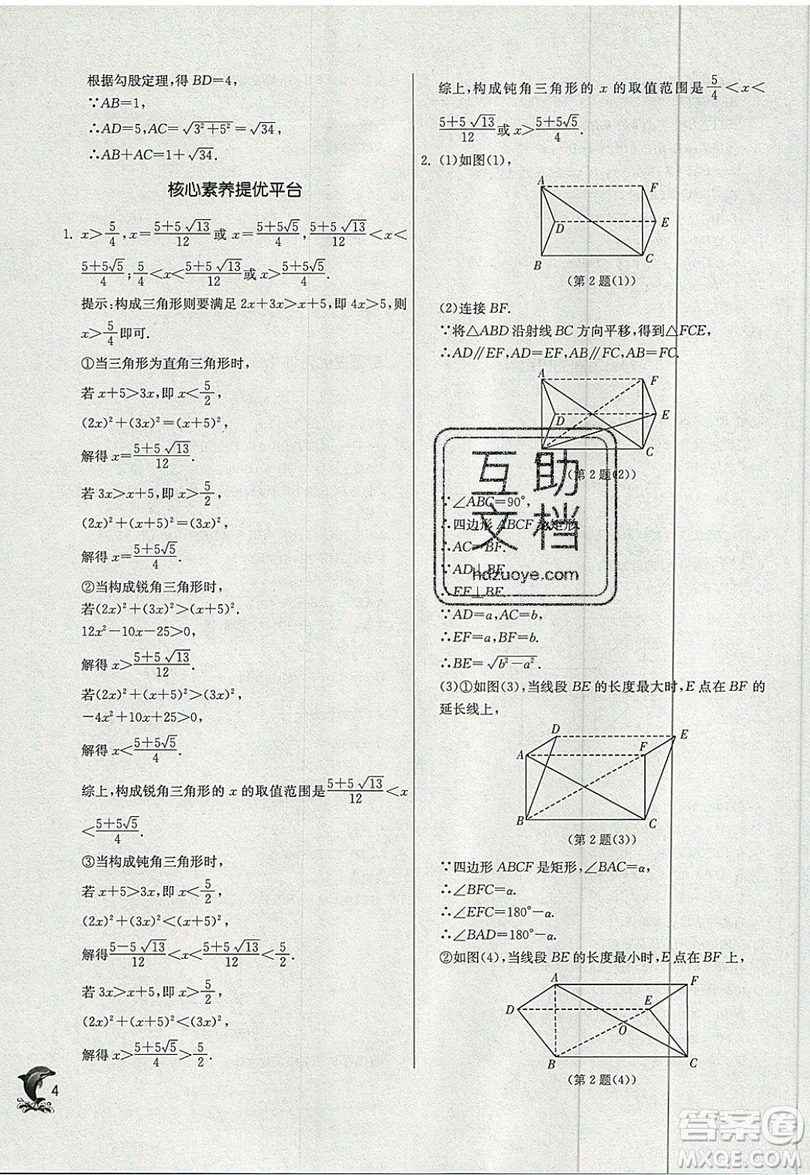 根据勾股定理，得 BD=4，
∵AB=1，
∴AD=5，AC=√(3²+5²)=√34，
∴AB+AC=1+√34.
核心素养提优平台
1. x>5/4，x=(5+5√13)/12或 x=(5+5√5)/4，(5+5√13)/12<x<
(5+5√5)/4；5/4<x<(5+5√13)/12或x>(5+5√5)/4.
提示：构成三角形则要满足 2x+3x>x+5，即 4x>5，则
x>5/4即可.
①当三角形为直角三角形时，
若 x+5>3x，即 x<5/2，
(2x)²+(3x)²=(x+5)²，
解得 x=(5+5√13)/12.
若 3x>x+5，即 x>5/2，
(2x)²+(x+5)²=(3x)²，
解得 x=(5+5√5)/4.
②当构成锐角三角形时，
若(2x)²+(3x)²>(x+5)².
12x²-10x-25>0，
解得 x>(5+5√13)/12.
若(2x)²+(x+5)²>(3x)²，
-4x²+10x+25>0，
解得 x<(5+5√5)/4.
综上，构成锐角三角形的 x 的取值范围是(5+5√13)/12<x
<(5+5√5)/4.
③当构成钝角三角形时，
若 x+5>3x，即 x<5/2，
(2x)²+(3x)²<(x+5)²，
解得(5-5√13)/12<x<(5+5√13)/12<5/2.
若 3x>x+5，即 x>5/2，
(2x)²+(x+5)²<(3x)²，
解得 x>(5+5√5)/4>5/2.
4
综上，构成钝角三角形的 x 的取值范围是5/4<x<
(5+5√13)/12或 x>(5+5√5)/4.
2. (1)如图(1)，
A
F
D
E
B
C
(第 2 题(1))
(2)连接 BF.
∵将△ABD 沿射线 BC 方向平移，得到△FCE，
∴AD∥EF，AD=EF，AF=BC，AF∥FC.
A
F
D
E
C
(第 2 题(2))
∵∠ABC=90°，
∴四边形 ABCF 为矩形.
∴AC=BF.
∵AD⊥BE，
∴EF⊥BE.
∵AD=a，AC=b，
∴EF=a，BF=b，
∴BE=√(b²-a²).
(3)①如图(3)，当线段 BE 的长度最大时，E 点在 BF 的
延长线上，
D
E
A
F
B
C
(第 2 题(3))
∵四边形 ABCF 是矩形，∠BAC=α，
∴∠BFC=α.
∴∠EFC=180°-α.
∴∠BAD=180°-α.
②如图(4)，当线段 BE 的长度最小时，E 点在 BF 上，
A
F
D
E
O
B
C
(第 2 题(4))
互助
文档
hdzuoye.com
答案圈
MXQE.COM